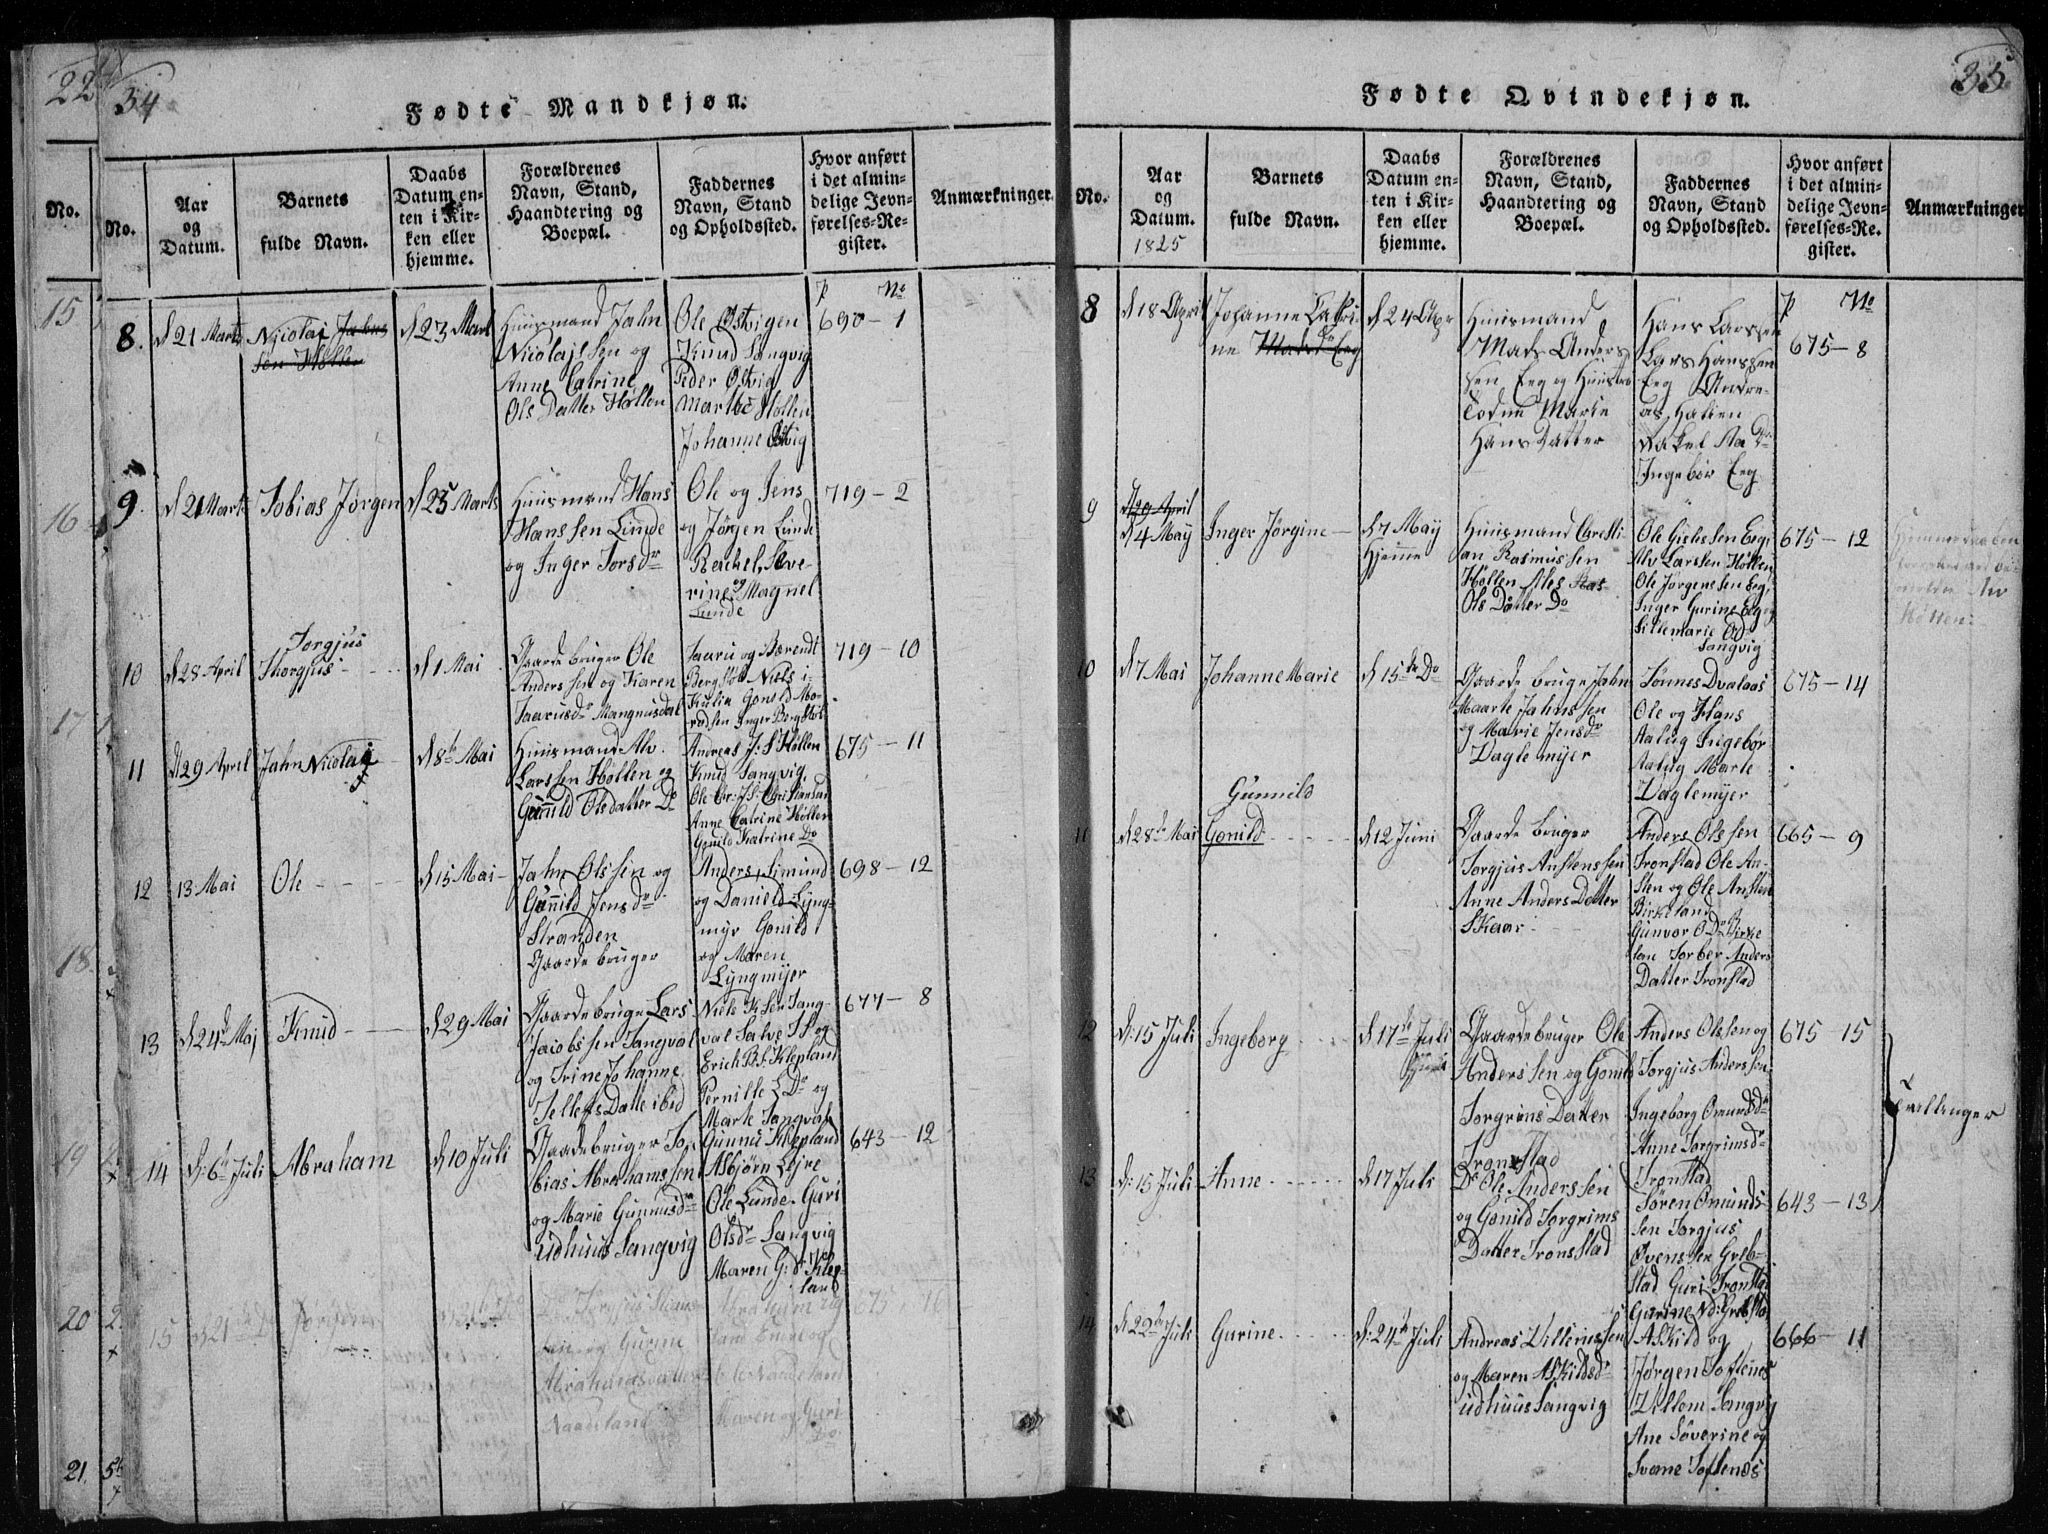 22
34
Fødte Mandkjøn.
No.
No.
Aar
og
Datum.
Barnets
fulde Navn.
Daabs
Datum en-
ten i Kir-
ken eller
hjemme.
Forældrenes
Navn, Stand,
Haandtering og
Boepæl.
Faddernes
Navn, Stand
og Opholdssted.
Hvor anført
i det almin-
delige Jevn-
førelses-Re-
gister.
Anmærkninger.
15
16
17
18
19
20
21
p No
8.
d 21 Marts
Nicolai Jahns
sen Høllen
d 23 Marts
Huusmand Jahn
Nicolajssen og
Anne Catrine
Ols Datter Høllen
Ole Østvigen
Knud Sangvig
Peder Østvig
Marthe Høllen
Johanne Østvig
690 - 1
9.
d 21 Marts
Tobias Jørgen
d 25 Marts
Huusmand Hans
Hanssen Lunde
og Inger Torsdr
Ole og Jens
og Jørgen Lunde
Rachel, Seve-
rine og Magnel
Lunde
719 - 2
10
d 28 April
Torgjus
Thorgjus
d 1 Mai
Gaardebruger Ole
Anderssen og Karen
Taarusdr Mangnusdal
Taaru og Berendt
Bergstøl Niels i
Kulia Gonild Mo-
Inger Bergstøl
719 - 10
11
d 29 April
Jahn Nicolai
d 8de Mai
Huusmand Alv
Larssen Høllen og
Gunnild Olsdatter Do
Andreas J: S Høllen
Knud Sangvig,
Ole Chr: J. S: Christiansand
Anne Catrine Høllen
Gunild Katrine Do
675 - 11
12
13 Mai
Ole
d 15 Mai
Jahn Olssen og
Gunnild Jensdr
Stranden
Gaardebruger
Anders, Simund
og Daniel Lyng-
myr Gonild
og Maren
Lyngmyer
698 - 12
13
d 24d Maj
Knud
d 29 Mai
Gaardebruge Lars
Jacobssen Sangval
og Trine Johanne
Tellefs Datte ibid
Niels K: Sen Sang-
val Salve I S og
Erich B. S. Klepland
Pernille L Dr og
Marte Sangval
677 - 8
14
d: 6te Juli
Abraham
d 10 Juli
Gaardebruger To-
bias Abrahamssen
og Marie Gunnusdr
Udhuus Sangvig
Gunnu Klepland
Asbjørn Lejre
Ole Lunde Guri
Olsdr Sangvig
Maren G: dr Klep-
land
643 - 12
15
d 21
Jørgen
Do Torgjus
sen og Gurine
Abrahamsdatter
Naauland
Abraham og
Ole Naadeland
Maren og Guri
Do
675 - 16
35
Fødte Qvindekjøn.
No.
Aar
og
Datum.
1825
Barnets
fulde Navn.
Daabs
Datum en-
ten i Kir-
ken eller
hjemme.
Forældrenes
Navn, Stand,
Haandtering og
Boepæl.
Faddernes
Navn, Stand
og Opholdssted.
Hvor anført
i det almin-
delige Jevn-
førelses-Re-
gister.
Anmærkninger
p No
8
d 18 April
Johanne Catri-
ne Madsdr Eeg
d 24 Apr
Huusmand
Mads Anders
sen Eeg og Huustro
Marie
Hans Datter
Hans Larssen
Lars Hanssen
Eeg Andre-
as
Ingebor Eeg
675 - 8
9
d 29 April
d 4 May
Inger Jørgine
d 7 May
Hjemme
Huusmand Christi-
an Rasmussen
Høllen
Ols Datter Do
Ole Gislessen Eeg,
Alv Larssen Høllen,
Ole Jørgenssen Eeg,
Inger Gurine Eeg og
Sillemarie O d
Sangvig
675 - 12
Høllen
10
d 7 Mai
Johanne Marie
d 15de Do
Gaardebruge Jahn
Maarte Jahnssen
og Marie Jensdr
Daglemyer
Tønnes Dvalaas
Ole og Hans
Aalug Ingebor
Aalug Marte
Daglemyer
675 - 14
11
d 28de Mai
Gunnild
Gonild
d 12 Juni
Gaardebruger
Torgjus Anstenssen
Anne Anders Datter
Skaar
Anders Olssen
Tronstad Ole An-
sten og Ole Ansten
Birkeland
Gunvor O Dr Birke
lan Torber Anders
Datter Tronstad
665 - 9
12
d: 15 Juli
Ingeborg
d 17de Juli
Gaardebruger Ole
Anderssen og Gonild
Torgrims Datter
Tronstad
Anders Olssen og
Torgjus Anderssen
Ingeborg Omundsdr
Anne Torgrimsdr
Tronstad
675 15
Tvillenger
13
d: 15 Juli
Anne
d 17 Juli
Do Ole Anderssen
og Gonild Torgrims
Datter Tronsstad
Søren Omunds-
sen Torgjus
Øvenssen Greb-
stad Guri Tronsta
Gurine N d: Grebsta
643 - 13
14
d 22de Juli
Gurine
d: 24de Juli
Andreas Villumssen
og Maren Askildsdr
Udhuus Sangvig
Askild og
Jørgen Toftenes
Villom Sangvig
Ane Søverine og
Svane Toftenes
666 - 11